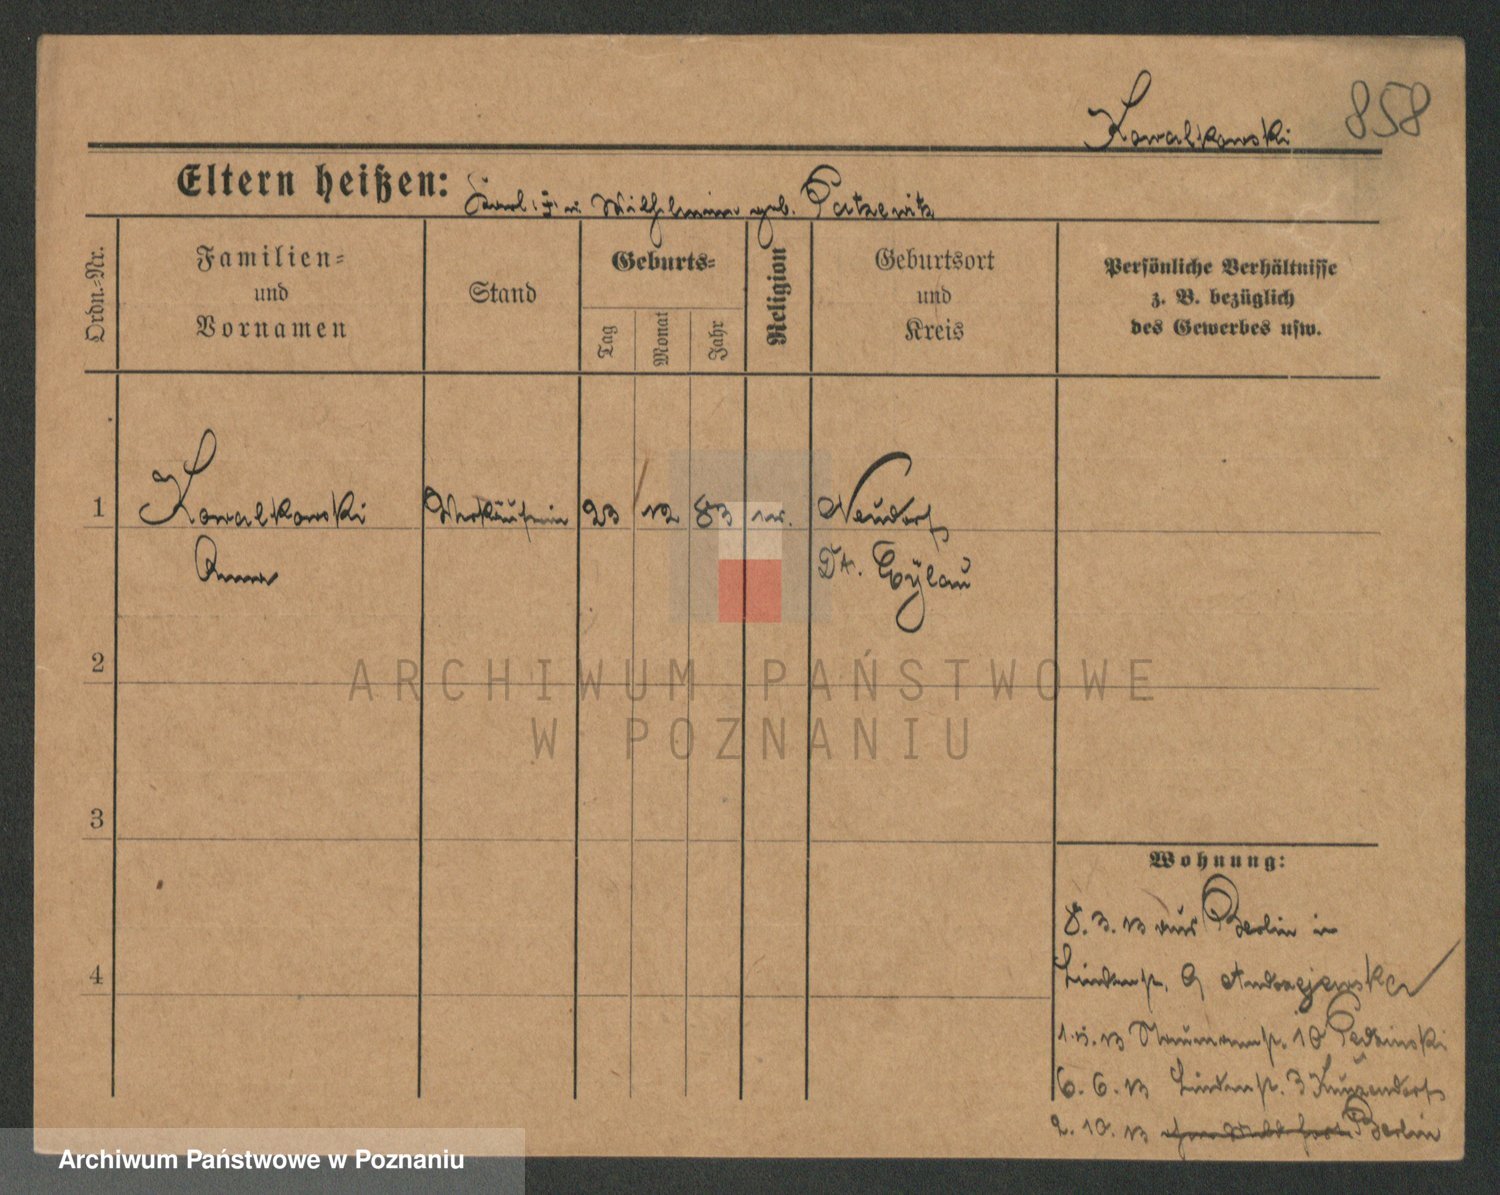 Kowalkowski 858
Eltern heißen: Karl u. Wilhelmine geb. Patzewitz
Ordn.-Nr.
Familien-
und
Vornamen
Stand
Geburts-
Tag
Monat
Jahr
Religion
Geburtsort
und
Kreis
Persönliche Verhältnisse
z. B. bezüglich
des Gewerbes usw.
1 Kowalkowski Verkäuferin 23 12 83 Neudorf
Anna Dt. Eylau
2
3
4
Wohnung:
8. 3. 13 aus Berlin in
Lindenstr. 9
10
6. 6. 13 Lindenstr. 3 Kunzendorf
2. 10. 13 Berlin
ARCHIWUM PAŃSTWOWE
W POZNANIU
Archiwum Państwowe w Poznaniu